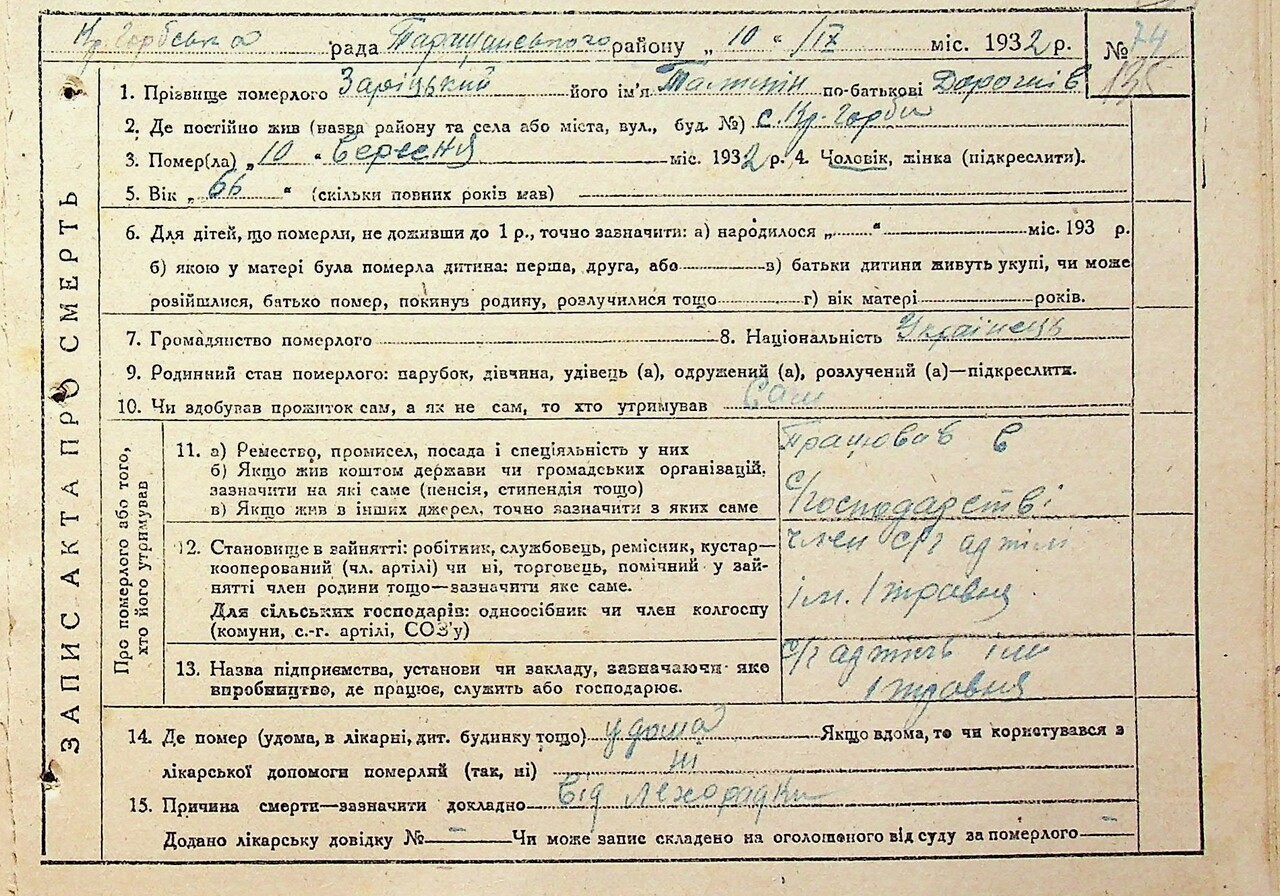 Кр. Горбська рада Таращанського району „ 10 “ /ІХ міс. 1932 р. № 74
135
1. Прізвище померлого Заріцький його ім'я по-батькові
2. Де постійно жив (назва району та села або міста, вул., буд. №) с. Кр-Горби
3. Помер(ла) „ 10 “ вересня міс. 1932 р. 4. Чоловік, жінка (підкреслити).
5. Вік „ 66 “ (скільки повних років мав)
6. Для дітей, що померли, не доживши до 1 р., точно зазначити: а) народилося „ “ міс. 193 р.
б) якою у матері була померла дитина: перша, друга, або в) батьки дитини живуть укупі, чи може
розійшлися, батько помер, покинув родину, розлучилися тощо г) вік матері років.
7. Громадянство померлого 8. Національність Українець
9. Родинний стан померлого: парубок, дівчина, удівець (а), одружений (а), розлучений (а)—підкреслити.
10. Чи здобував прожиток сам, а як не сам, то хто утримував Сам
ЗАПИС АКТА ПРО СМЕРТЬ
Про померлого або того,
хто його утримував
11. а) Ремество, промисел, посада і спеціяльність у них
б) Якщо жив коштом держави чи громадських організацій,
зазначити на які саме (пенсія, стипендія тощо)
в) Якщо жив в інших джерел, точно зазначити з яких саме
Працював в
с/господарстві
12. Становище в зайнятті: робітник, службовець, ремісник, кустар—
кооперований (чл. артілі) чи ні, торговець, помічний у зай-
нятті член родини тощо—зазначити яке саме.
Для сільських господарів: одноосібник чи член колгоспу
(комуни, с.-г. артілі, СОЗ'у)
член с/г артілі
ім. 1 травня
13. Назва підприємства, установи чи закладу, зазначаючи яко
виробництво, де працює, служить або господарює.
с/г артіль ім
1 травня
14. Де помер (удома, в лікарні, дит. будинку тощо) удома Якщо вдома, то чи користувався з
лікарської допомоги померлий (так, ні) ні
15. Причина смерти—зазначити докладно від лихорадки
Додано лікарську довідку № — Чи може запис складено на оголошеного від суду за померлого —